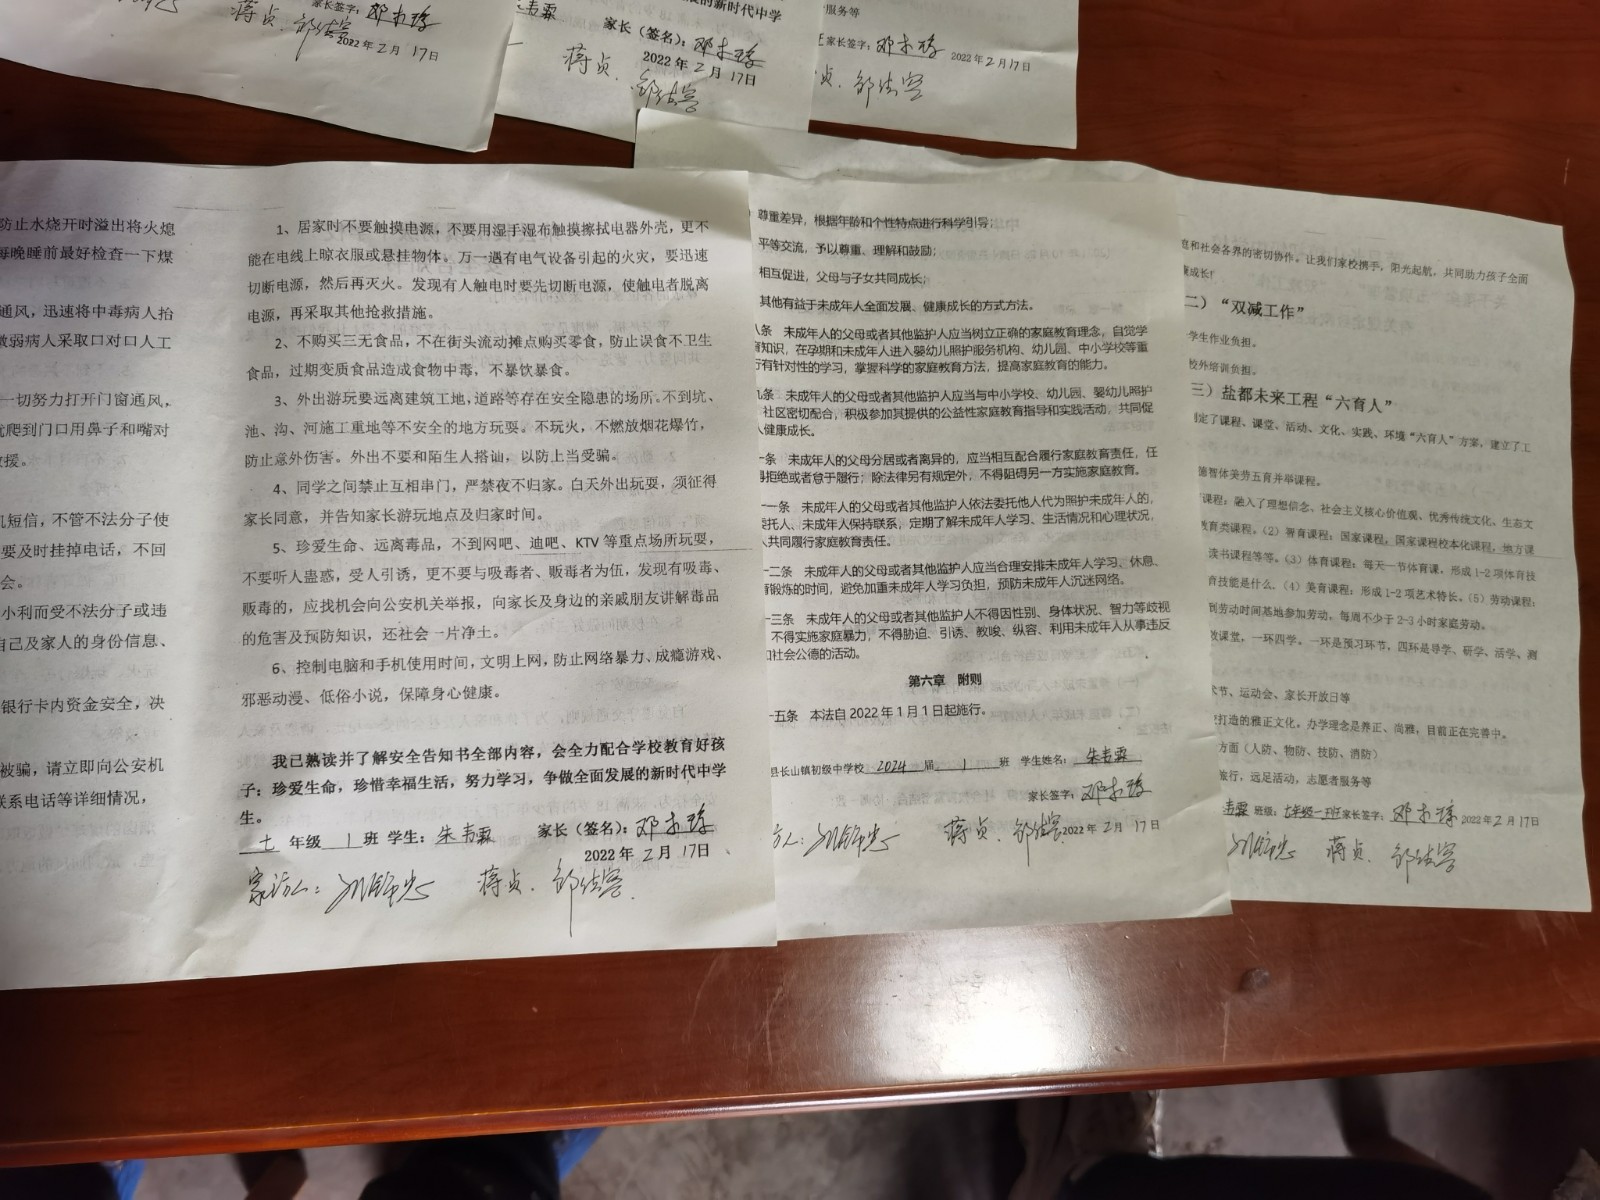 家长签字：邓术琼
蒋贞 邹结容
2022年2月17日
的新时代中学
家长（签名）：邓术琼
2022年2月17日
蒋贞.
服务等
家长签字：邓术琼 2022年2月17日
贞.
防止水烧开时溢出将火熄
每晚睡前最好检查一下煤
通风，迅速将中毒病人抬
微弱病人采取口对口人工
一切努力打开门窗通风，
爬到门口用鼻子和嘴对
救援。
短信，不管不法分子使
要及时挂掉电话，不回
会。
小利而受不法分子或违
自己及家人的身份信息、
银行卡内资金安全，决
被骗，请立即向公安机
联系电话等详细情况，
1、居家时不要触摸电源，不要用湿手湿布触摸擦拭电器外壳，更不
能在电线上晾衣服或悬挂物体。万一遇有电气设备引起的火灾，要迅速
切断电源，然后再灭火。发现有人触电时要先切断电源，使触电者脱离
电源，再采取其他抢救措施。
2、不购买三无食品，不在街头流动摊点购买零食，防止误食不卫生
食品，过期变质食品造成食物中毒，不暴饮暴食。
3、外出游玩要远离建筑工地，道路等存在安全隐患的场所。不到坑、
池、沟、河施工重地等不安全的地方玩耍。不玩火，不燃放烟花爆竹，
防止意外伤害。外出不要和陌生人搭讪，以防上当受骗。
4、同学之间禁止互相串门，严禁夜不归家。白天外出玩耍，须征得
家长同意，并告知家长游玩地点及归家时间。
5、珍爱生命、远离毒品，不到网吧、迪吧、KTV等重点场所玩耍，
不要听人蛊惑，受人引诱，更不要与吸毒者、贩毒者为伍，发现有吸毒、
贩毒的，应找机会向公安机关举报，向家长及身边的亲戚朋友讲解毒品
的危害及预防知识，还社会一片净土。
6、控制电脑和手机使用时间，文明上网，防止网络暴力、成瘾游戏、
邪恶动漫、低俗小说，保障身心健康。
我已熟读并了解安全告知书全部内容，会全力配合学校教育好孩
子：珍爱生命，珍惜幸福生活，努力学习，争做全面发展的新时代中学
生。
七 年级 1 班 学生：朱韦霖 家长（签名）：邓术琼
2022年2月17日
家访人： 蒋贞.
尊重差异，根据年龄和个性特点进行科学引导；
平等交流，予以尊重、理解和鼓励；
相互促进，父母与子女共同成长；
其他有益于未成年人全面发展、健康成长的方式方法。
条 未成年人的父母或者其他监护人应当树立正确的家庭教育理念，自觉学
育知识，在孕期和未成年人进入婴幼儿照护服务机构、幼儿园、中小学校等重
行有针对性的学习，掌握科学的家庭教育方法，提高家庭教育的能力。
条 未成年人的父母或者其他监护人应当与中小学校、幼儿园、婴幼儿照护
社区密切配合，积极参加其提供的公益性家庭教育指导和实践活动，共同促
人健康成长。
条 未成年人的父母分居或者离异的，应当相互配合履行家庭教育责任，任
得拒绝或者怠于履行；除法律另有规定外，不得阻碍另一方实施家庭教育。
一条 未成年人的父母或者其他监护人依法委托他人代为照护未成年人的，
委托人、未成年人保持联系，定期了解未成年人学习、生活情况和心理状况，
人共同履行家庭教育责任。
二条 未成年人的父母或者其他监护人应当合理安排未成年人学习、休息、
育锻炼的时间，避免加重未成年人学习负担，预防未成年人沉迷网络。
三条 未成年人的父母或者其他监护人不得因性别、身体状况、智力等歧视
不得实施家庭暴力，不得胁迫、引诱、教唆、纵容、利用未成年人从事违反
和社会公德的活动。
第六章 附则
五条 本法自2022年1月1日起施行。
县长山镇初级中学校 2024 届 1 班 学生姓名：朱韦霖
家长签字：邓术琼
蒋贞. 2022年2月17日
庭和社会各界的密切协作。让我们家校携手，阳光起航，共同助力孩子全面
康成长！
二）“双减工作”
学生作业负担。
校外培训负担。
三）盐都未来工程“六育人”
制定了课程、课堂、活动、文化、实践、环境“六育人”方案，建立了工
德智体美劳五育并举课程。
课程：融入了理想信念、社会主义核心价值观、优秀传统文化、生态文
教育类课程。（2）智育课程：国家课程，国家课程校本化课程，地方课
读书课程等等。（3）体育课程：每天一节体育课，形成1-2项体育技
育技能是什么。（4）美育课程：形成1-2项艺术特长。（5）劳动课程：
到劳动时间基地参加劳动、每周不少于2-3小时家庭劳动。
效课堂，一环四学。一环是预习环节，四环是导学、研学、活学、测
术节、运动会、家长开放日等
打造的雅正文化。办学理念是养正、尚雅，目前正在完善中。
方面（人防、物防、技防、消防）
旅行，远足活动，志愿者服务等
韦霖 班级：七年级一班 家长签字：邓术琼 2022年2月17日
蒋贞.